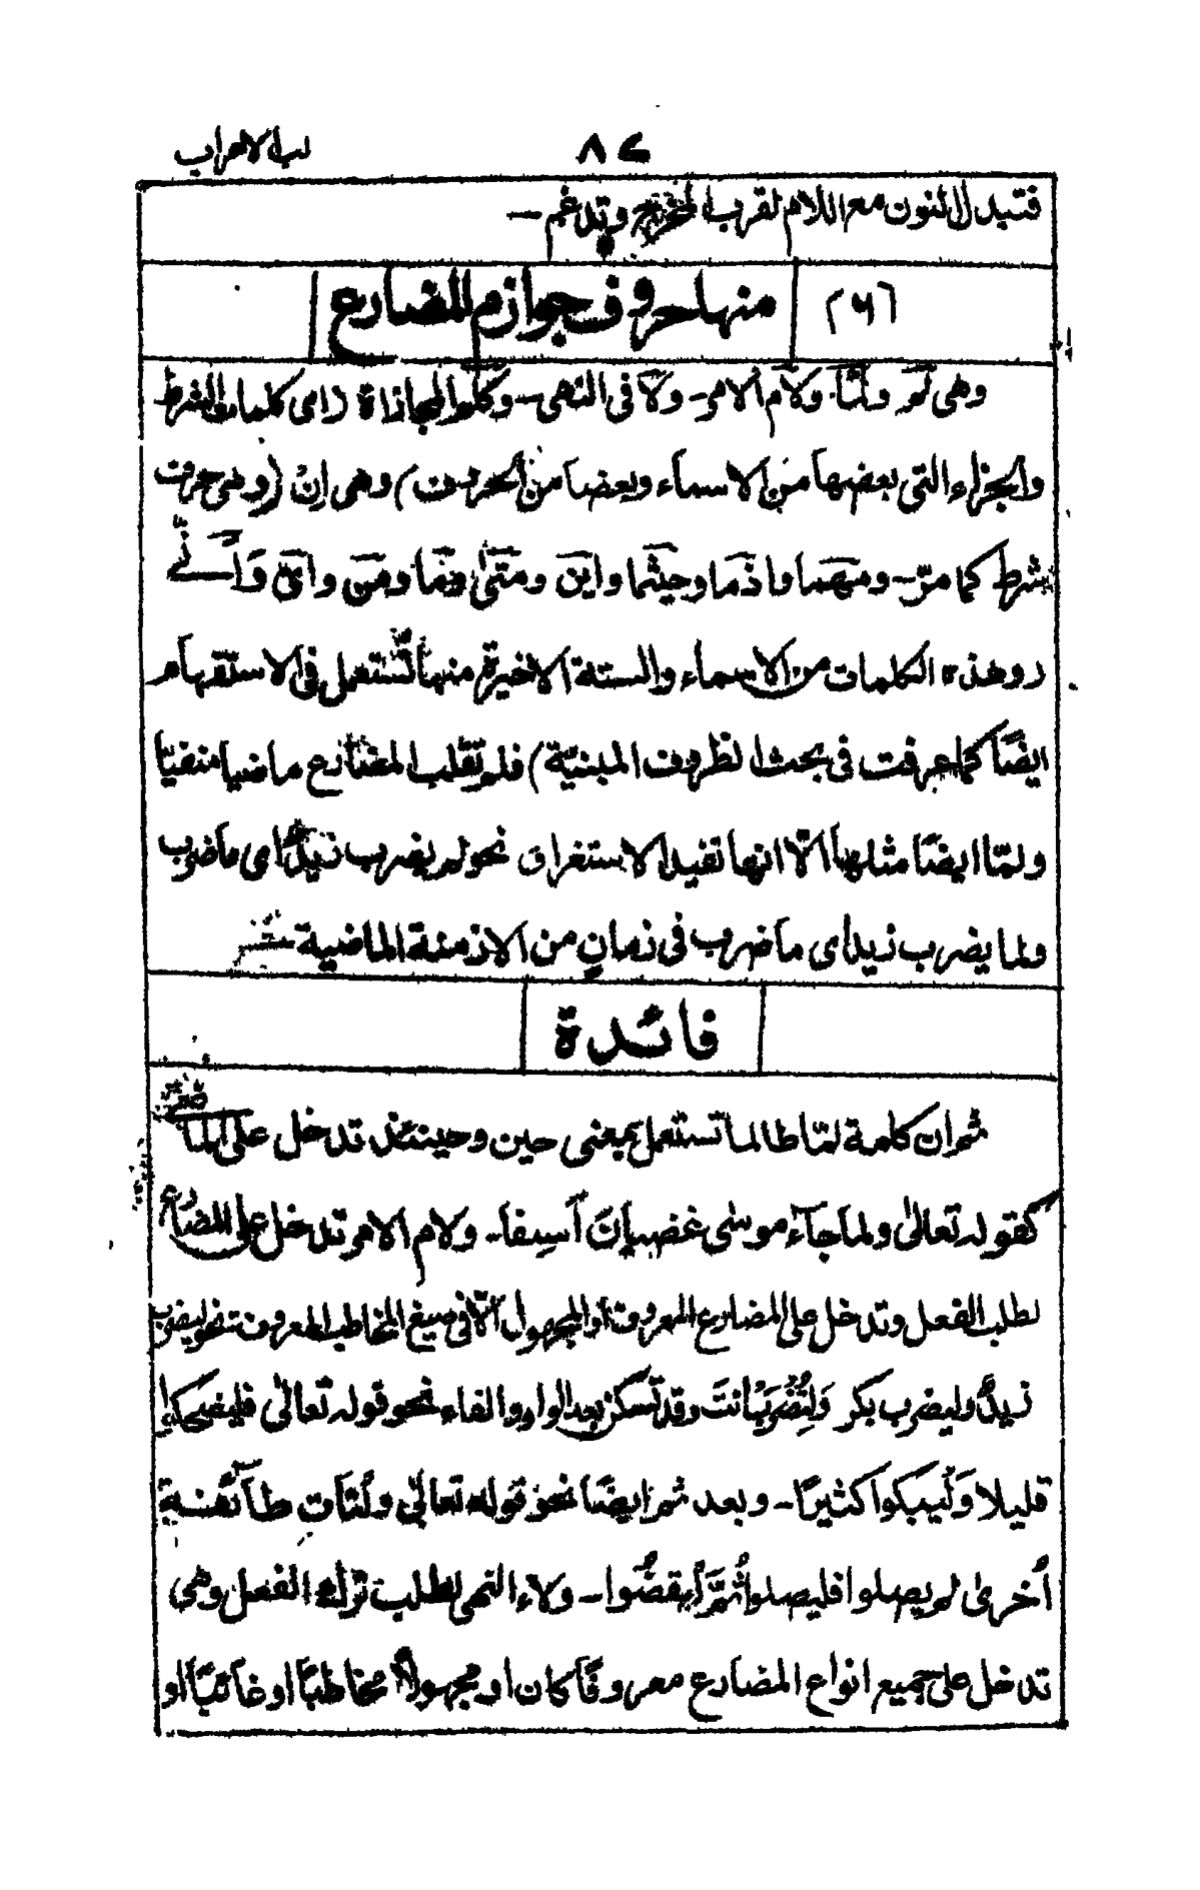 لب الاعراب
٨٤
فتبدل النون مع اللام لقرب المخرج وتدغم —
(٢٦) منها حروف جوازم المضارع
وهى لَم ولَمَّا ولَام الامر - ولَا فى النهى - وكلم المجازاة (اى كلمات الشرط
والجزاء التى بعضها من الاسماء وبعضها من الحروف) وهى اِنْ (وهى حرف
شرط كما مرّ - ومَهما واذما وحيثما واين ومتى ومَا ومَن واىّ وَاَنّٰى
(وهذه الكلمات من الاسماء والستة الاخيرة منها تستعمل فى الاستفهام
ايضًا كما عرفت فى بحث الظروف المبنيّة) فلم تقلب المضارع ماضيا منفيّا
ولمّا ايضًا مثلها الّا انها تفيد الاستغراق نحو لم يضرب زيدٌ اى ما ضرب
ولما يضرب زيد اى ما ضرب فى زمانٍ من الازمنة الماضية
فائدة
ثم ان كلمة لمّا طالما تستعمل بمعنى حين وحينئذ تدخل على الماضى
كقوله تعالىٰ ولما جاء موسٰى غضبان اَسِفا - ولام الامر تدخل على المضارع
لطلب الفعل وتدخل على المضارع المعروف او المجهول الّا فى صيغ المخاطب المعروف نحو ليضرب
زيدٌ وليضرب بكر وَلِتُضْرَبْ انتَ وقد تسكن بعد الواو والفاء نحو قوله تعالٰى فليضحكوا
قليلا وَلْيبكوا كثيرًا - وبعد ثم ايضًا نحو قوله تعالٰى ولْتَأت طآئفة
اُخرىٰ لم يصلوا فليصلوا ثُمَّ لْيقضُوا - ولاء النهى لطلب ترك الفعل وهى
تدخل على جميع انواع المضارع معروفًا كان او مجهولًا مخاطبًا او غائبًا او